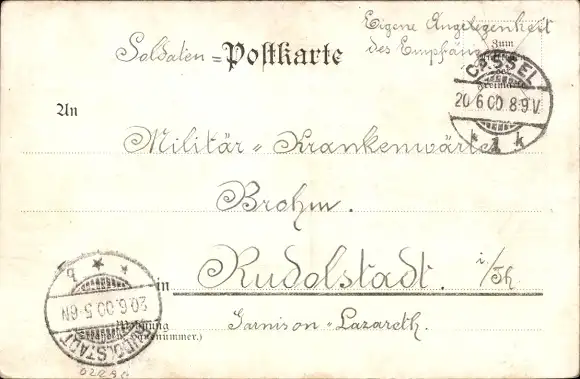 Eigene Angelegenheit
des Empfäng
Soldaten = Postkarte
Zum
Freimarke
CASSEL
20 6 00 8-9 V.
* 1 k
An
Militär = Krankenwärter
Brohm.
in Rudolstadt. i/Th
Wohnung
Garnison = Lazareth.
RUDOLSTADT
20.6.00.5-6N